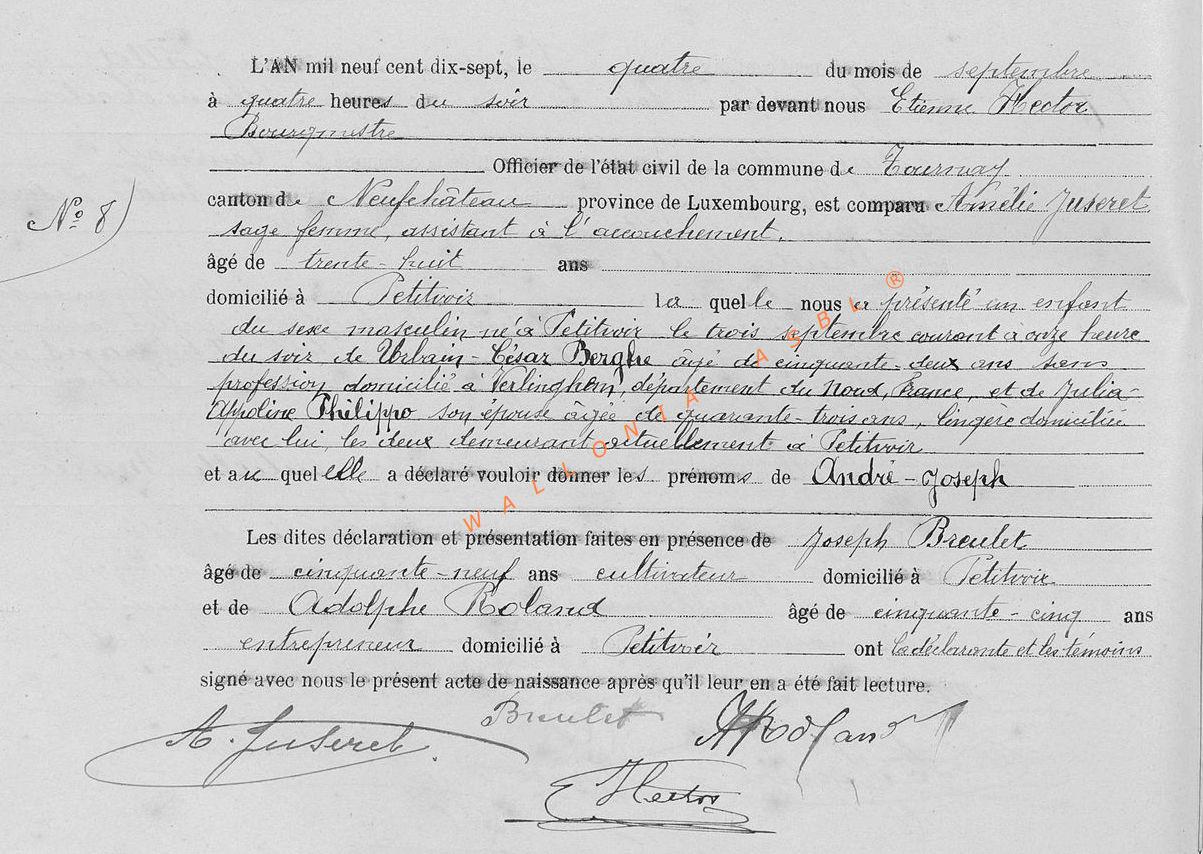 L'AN mil neuf cent dix-sept, le quatre du mois de septembre
à quatre heures du soir par devant nous Etienne Hector
Bourgmestre
Officier de l'état civil de la commune de Tournay
Nº 8
canton de Neufchâteau province de Luxembourg, est comparu Amélie Juseret
sage femme, assistant à l'accouchement,
âgé de trente-huit ans
domicilié à Petitvoir laquelle nous a présenté un enfant
du sexe masculin né à Petitvoir le trois septembre courant à onze heure
du soir de Urbain-César Berghe âgé de cinquante-deux ans sans
profession domicilié à Verlinghem, département du Nord, France, et de Julia
Appoline Philippo son épouse âgée de quarante-trois ans, lingère domiciliée
avec lui, les deux demeurant actuellement à Petitvoir
et au quel elle a déclaré vouloir donner les prénoms de André-Joseph
Les dites déclaration et présentation faites en présence de Joseph Breulet
âgé de cinquante-neuf ans cultivateur domicilié à Petitvoir
et de Adolphe Roland âgé de cinquante-cinq ans
entrepreneur domicilié à Petitvoir ont la déclarante et les témoins
signé avec nous le présent acte de naissance après qu'il leur en a été fait lecture.
A. Juseret Breulet A Roland
E Hector
WALLONIA ASBL ®